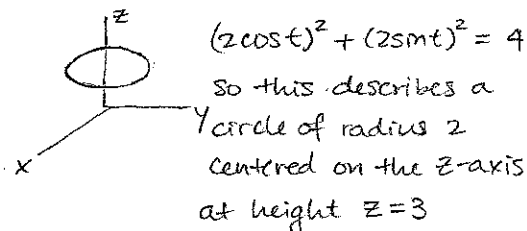 z
(2cost)² + (2smt)² = 4
so this describes a
y circle of radius 2
x centered on the z-axis
at height z=3